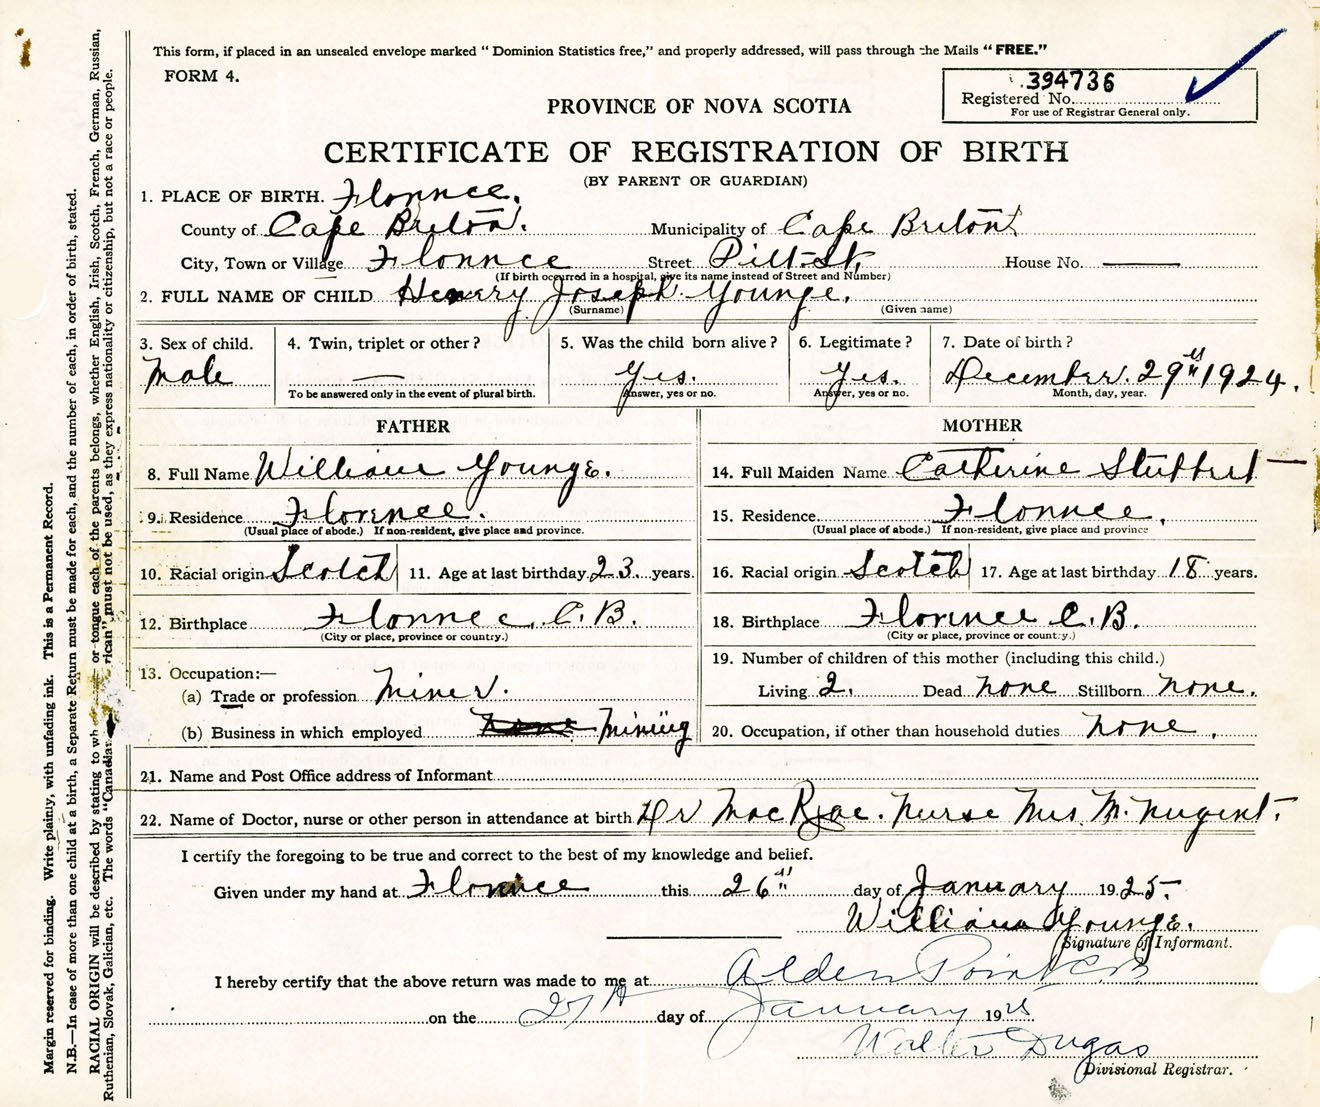 This form, if placed in an unsealed envelope marked “ Dominion Statistics free,” and properly addressed, will pass through the Mails “ FREE.”
FORM 4.
394736
Registered No.
For use of Registrar General only.
PROVINCE OF NOVA SCOTIA
CERTIFICATE OF REGISTRATION OF BIRTH
(BY PARENT OR GUARDIAN)
1. PLACE OF BIRTH. Florence.
County of Cape Breton. Municipality of Cape Breton
City, Town or Village Florence Street Pitt St. House No. —
(If birth occurred in a hospital, give its name instead of Street and Number)
2. FULL NAME OF CHILD Henry Joseph Younge.
(Surname) (Given name)
3. Sex of child. 4. Twin, triplet or other ? 5. Was the child born alive ? 6. Legitimate ? 7. Date of birth ?
Male — Yes. Yes. December. 29th 1924.
To be answered only in the event of plural birth. Answer, yes or no. Answer, yes or no. Month, day, year.
FATHER MOTHER
8. Full Name William Younge. 14. Full Maiden Name Catherine
9. Residence Florence. 15. Residence Florence.
(Usual place of abode.) If non-resident, give place and province. (Usual place of abode.) If non-resident, give place and province
10. Racial origin Scotch 11. Age at last birthday 23 years. 16. Racial origin Scotch 17. Age at last birthday 18 years.
12. Birthplace Florence. C.B. 18. Birthplace Florence C.B.
(City or place, province or country.) (City or place, province or country.)
13. Occupation:— 19. Number of children of this mother (including this child.)
(a) Trade or profession Miner. Living 2. Dead none Stillborn none.
(b) Business in which employed none Mining 20. Occupation, if other than household duties none.
21. Name and Post Office address of Informant
22. Name of Doctor, nurse or other person in attendance at birth Dr MacRae. Nurse Mrs M. Nugent.
I certify the foregoing to be true and correct to the best of my knowledge and belief.
Given under my hand at Florence this 26th day of January 1925
William Younge.
Signature of Informant.
I hereby certify that the above return was made to me at Alder Point CB
on the 27th day of January 1925
Walter Dugas
Divisional Registrar.
Margin reserved for binding. Write plainly, with unfading ink. This is a Permanent Record.
N.B.—In case of more than one child at a birth, a Separate Return must be made for each, and the number of each, in order of birth, stated.
RACIAL ORIGIN will be described by stating to wh or tongue each of the parents belongs, whether English, Irish, Scotch, French, German, Russian,
Ruthenian, Slovak, Galician, etc. The words “Canadian rican” must not be used, as they express nationality or citizenship, but not a race or people.